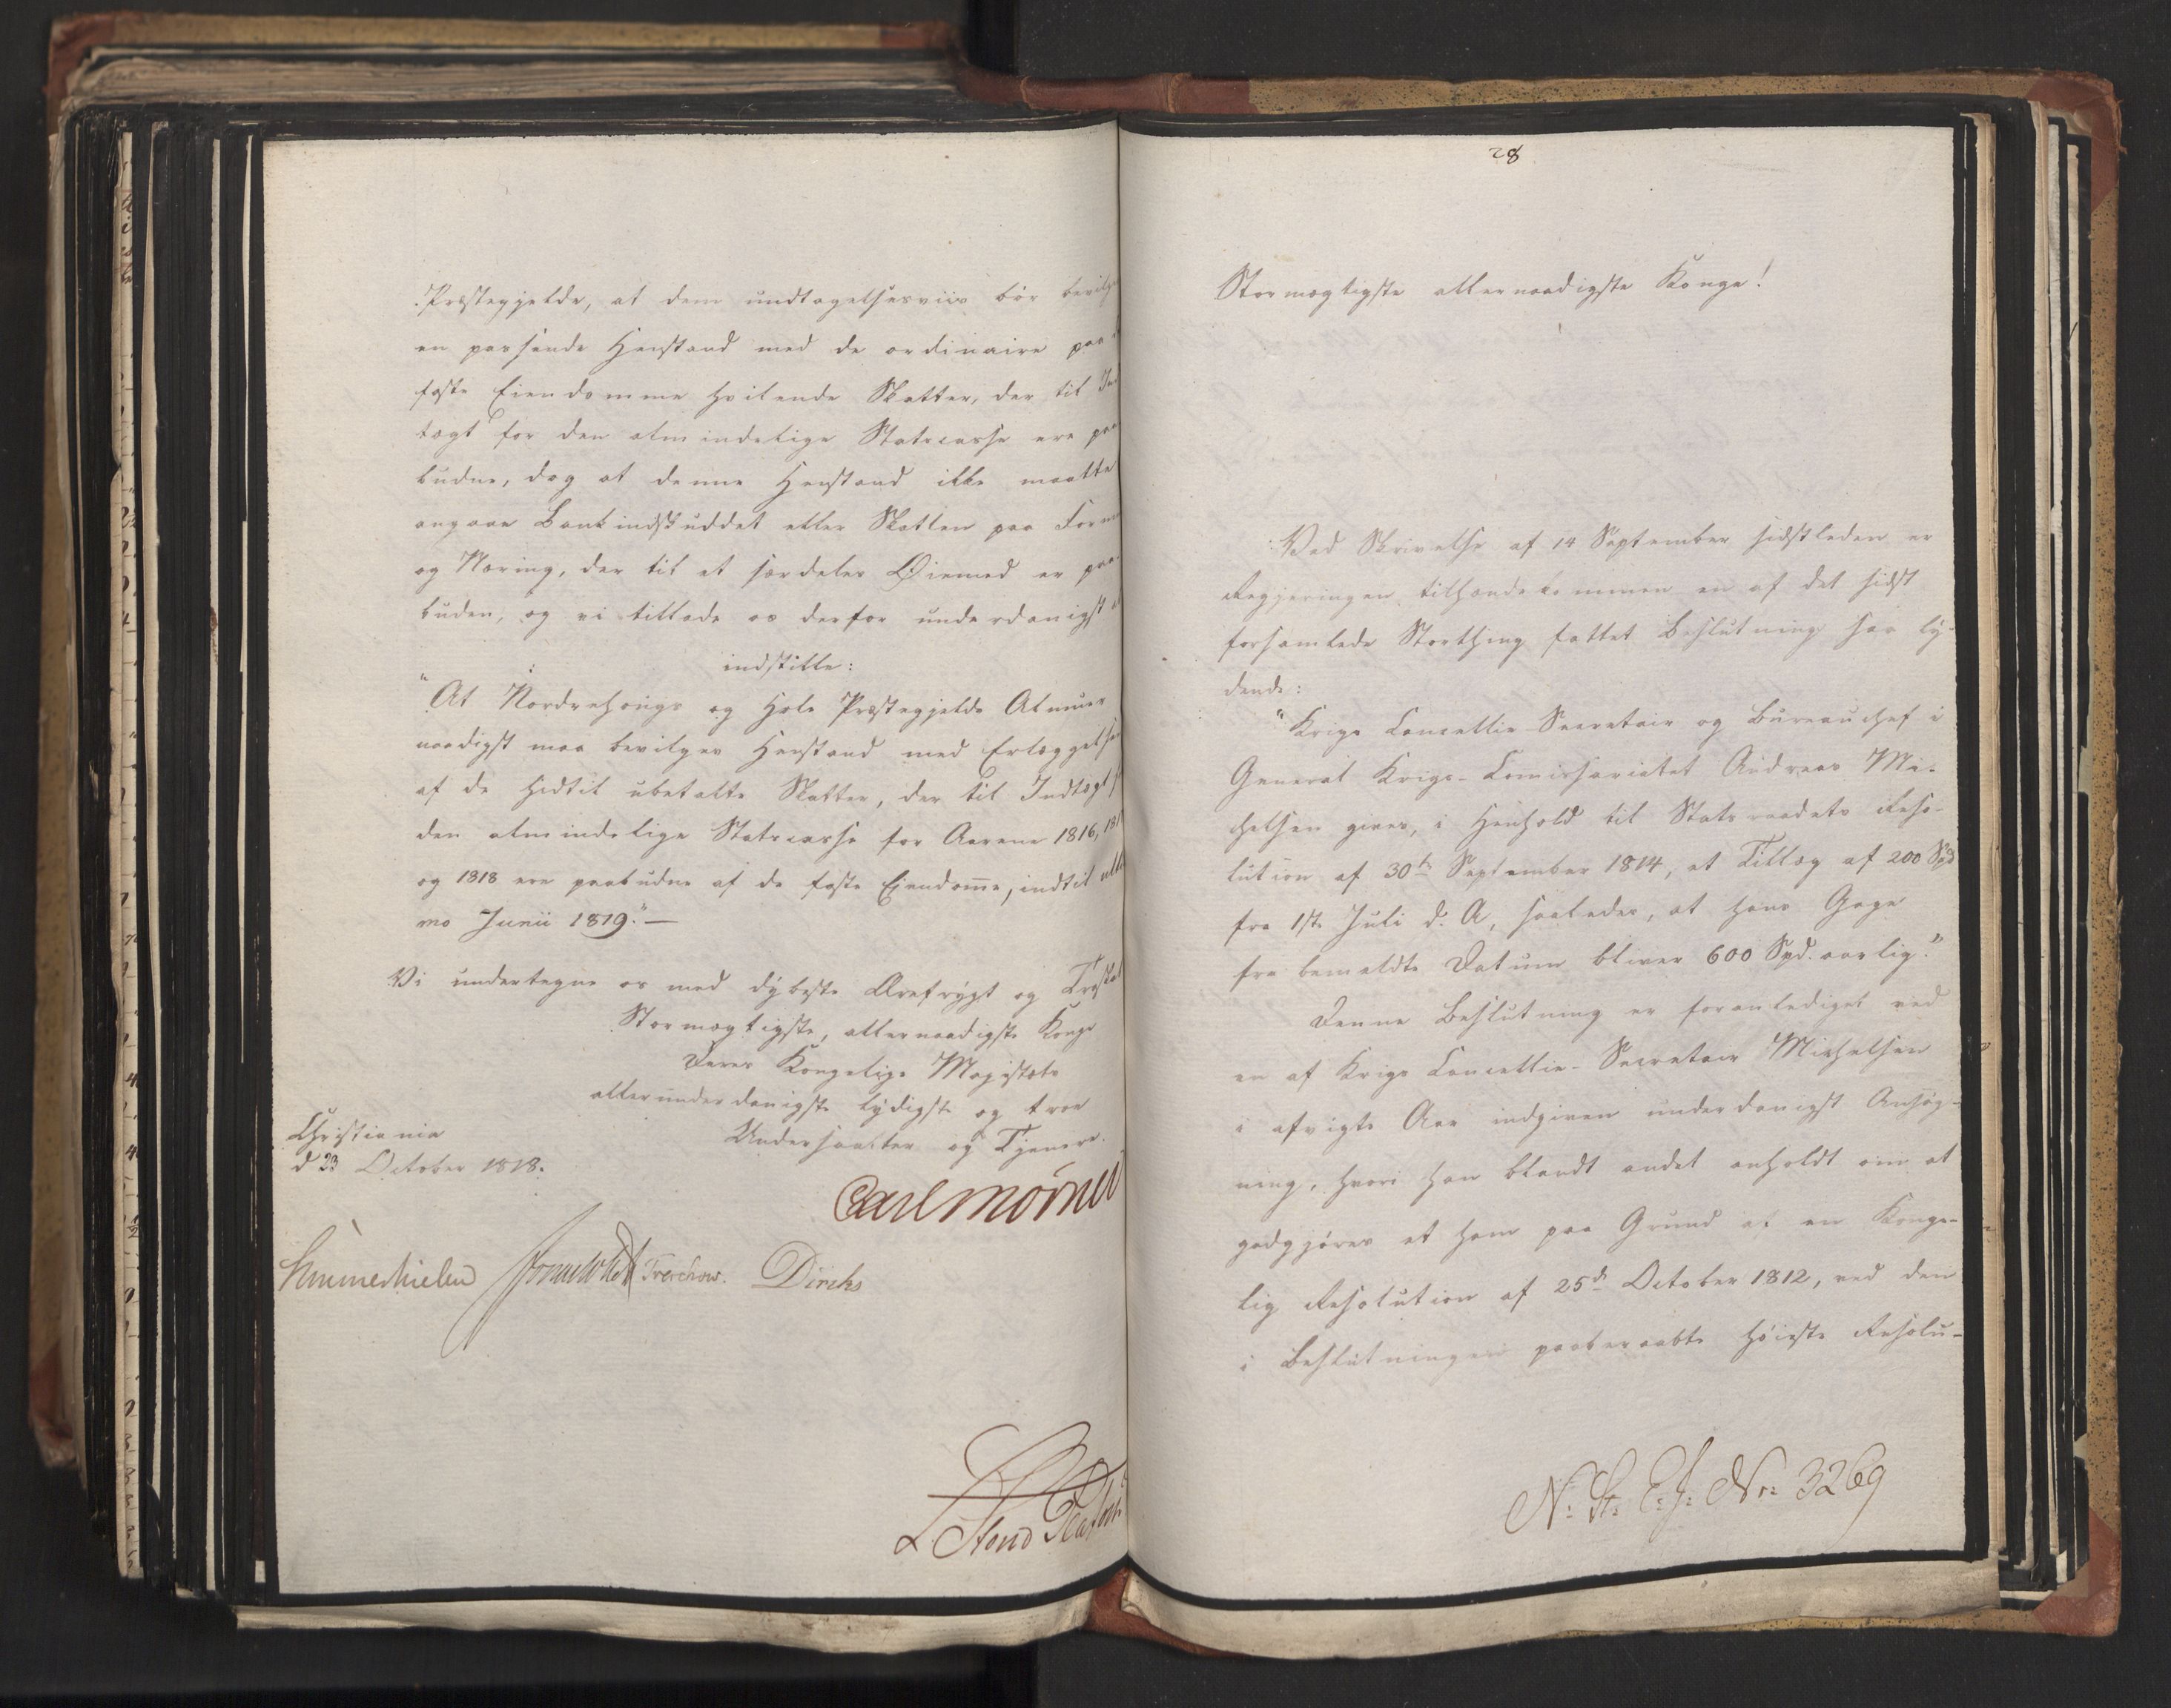 Præstegjelde, at dem undtagelsesviis bør bevilges
en passende Henstand med de ordinaire paa
faste Eiendomme hvilende Skatter, der til Ind
tægt for den almindelige Statscasse ere paa
budne, dog at denne Henstand ikke maatte
angaae Bankindskuddet eller Skatten paa Formue
og Næring, der til et særdeles Øiemed er paa
buden, og vi tillade os derfor underdanigst at
indstille:
"At Nordrehougs og Hole Præstegjelds Almuer
naadigst maa bevilges Henstand med Erlæggelsen
af de hidtil ubetalte Skatter, der til Indtægt for
den almindelige Statscasse for Aarene 1816, 1817
og 1818 ere paabudne af de faste Eiendomme, indtil ulti
mo Junii 1819."—
Vi undertegne os med dybeste Ærefrygt og Troskab
Stormægtigste, allernaadigste Konge
Deres Kongelige Majestæts
allerunderdanigste lydigste og troe
Christiania
d 23 October 1818.
Undersaatter og Tjenere.
Carl Mörner
Sommerhielm Treschow. Diriks
28
Stormægtigste allernaadigste Konge!
Ved Skrivelse af 14 September sidstleden er
Regjeringen tilhændekommen en af det sidst
forsamlede Storthing fattet Beslutning saa ly-
dende:
"Krigs Cancellie-Secretair og Bureauchef i
General Krigs-Comissariatet Andreas Mi-
chelsen gives, i Henhold til Statsraadets Reso-
lution af 30te September 1814, et Tillæg af 200 Spd
fra 1ste Juli d. A, saaledes, at hans Gage
fra bemeldte Datum bliver 600 Spd. aarlig."
Denne Beslutning er foranlediget ved
en af Krigs Cancellie-Secretair Michelsen
i afvigte Aar indgiven underdanigst Ansøg-
ning, hvori han blandt andet anholdt om at
godtgjøres at ham paa Grund af en Konge-
lig Resolution af 25de October 1812, ved den
i Beslutningen paaberaabte høieste Resolu-
N: St: E: J: No: 3269